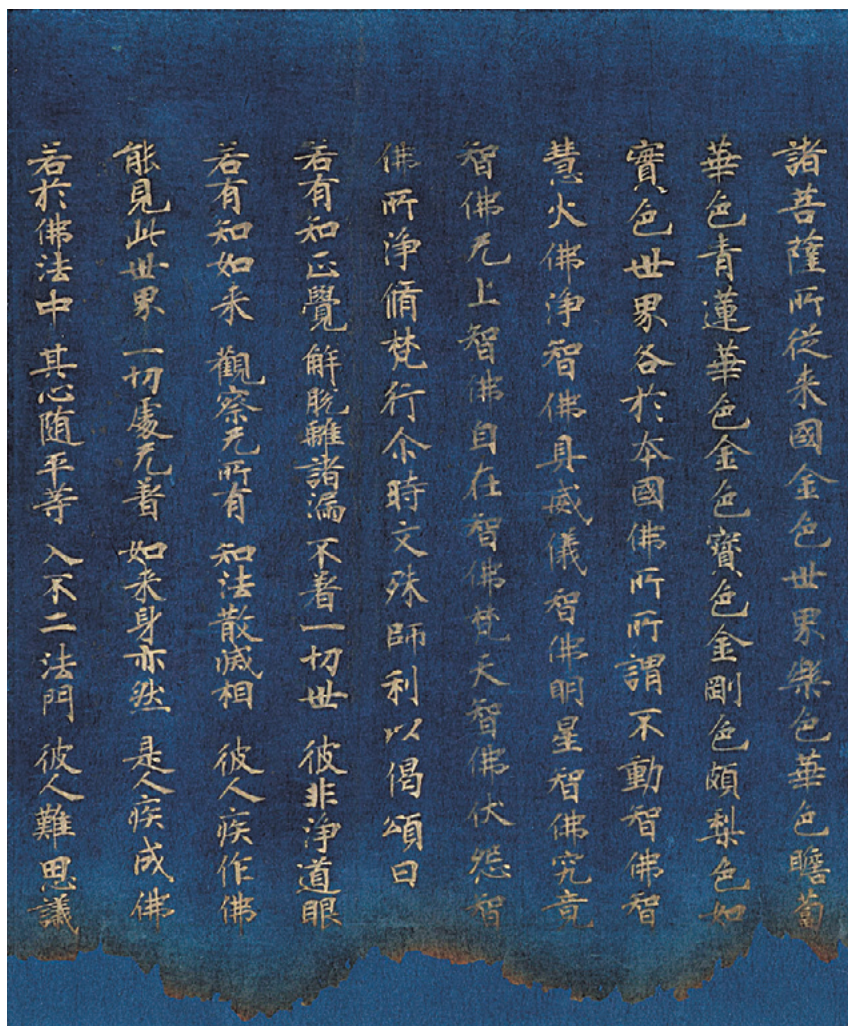 諸菩薩所從来國金色世界樂色華色瞻蔔
華色青蓮華色金色寶色金剛色頗梨色如
寳色世界各於本國佛所所謂不動智佛智
慧火佛淨智佛具威儀智佛明星智佛究竟
智佛无上智佛自在智佛梵天智佛伏怨智
佛所淨脩梵行尒時文殊師利以偈頌曰
若有知正覺 解脫離諸漏 不著一切世 彼非淨道眼
若有知如来 觀察无所有 知法散滅相 彼人疾作佛
能見此世界 一切處无著 如来身亦然 是人疾成佛
若於佛法中 其心随平等 入不二法門 彼人難思議